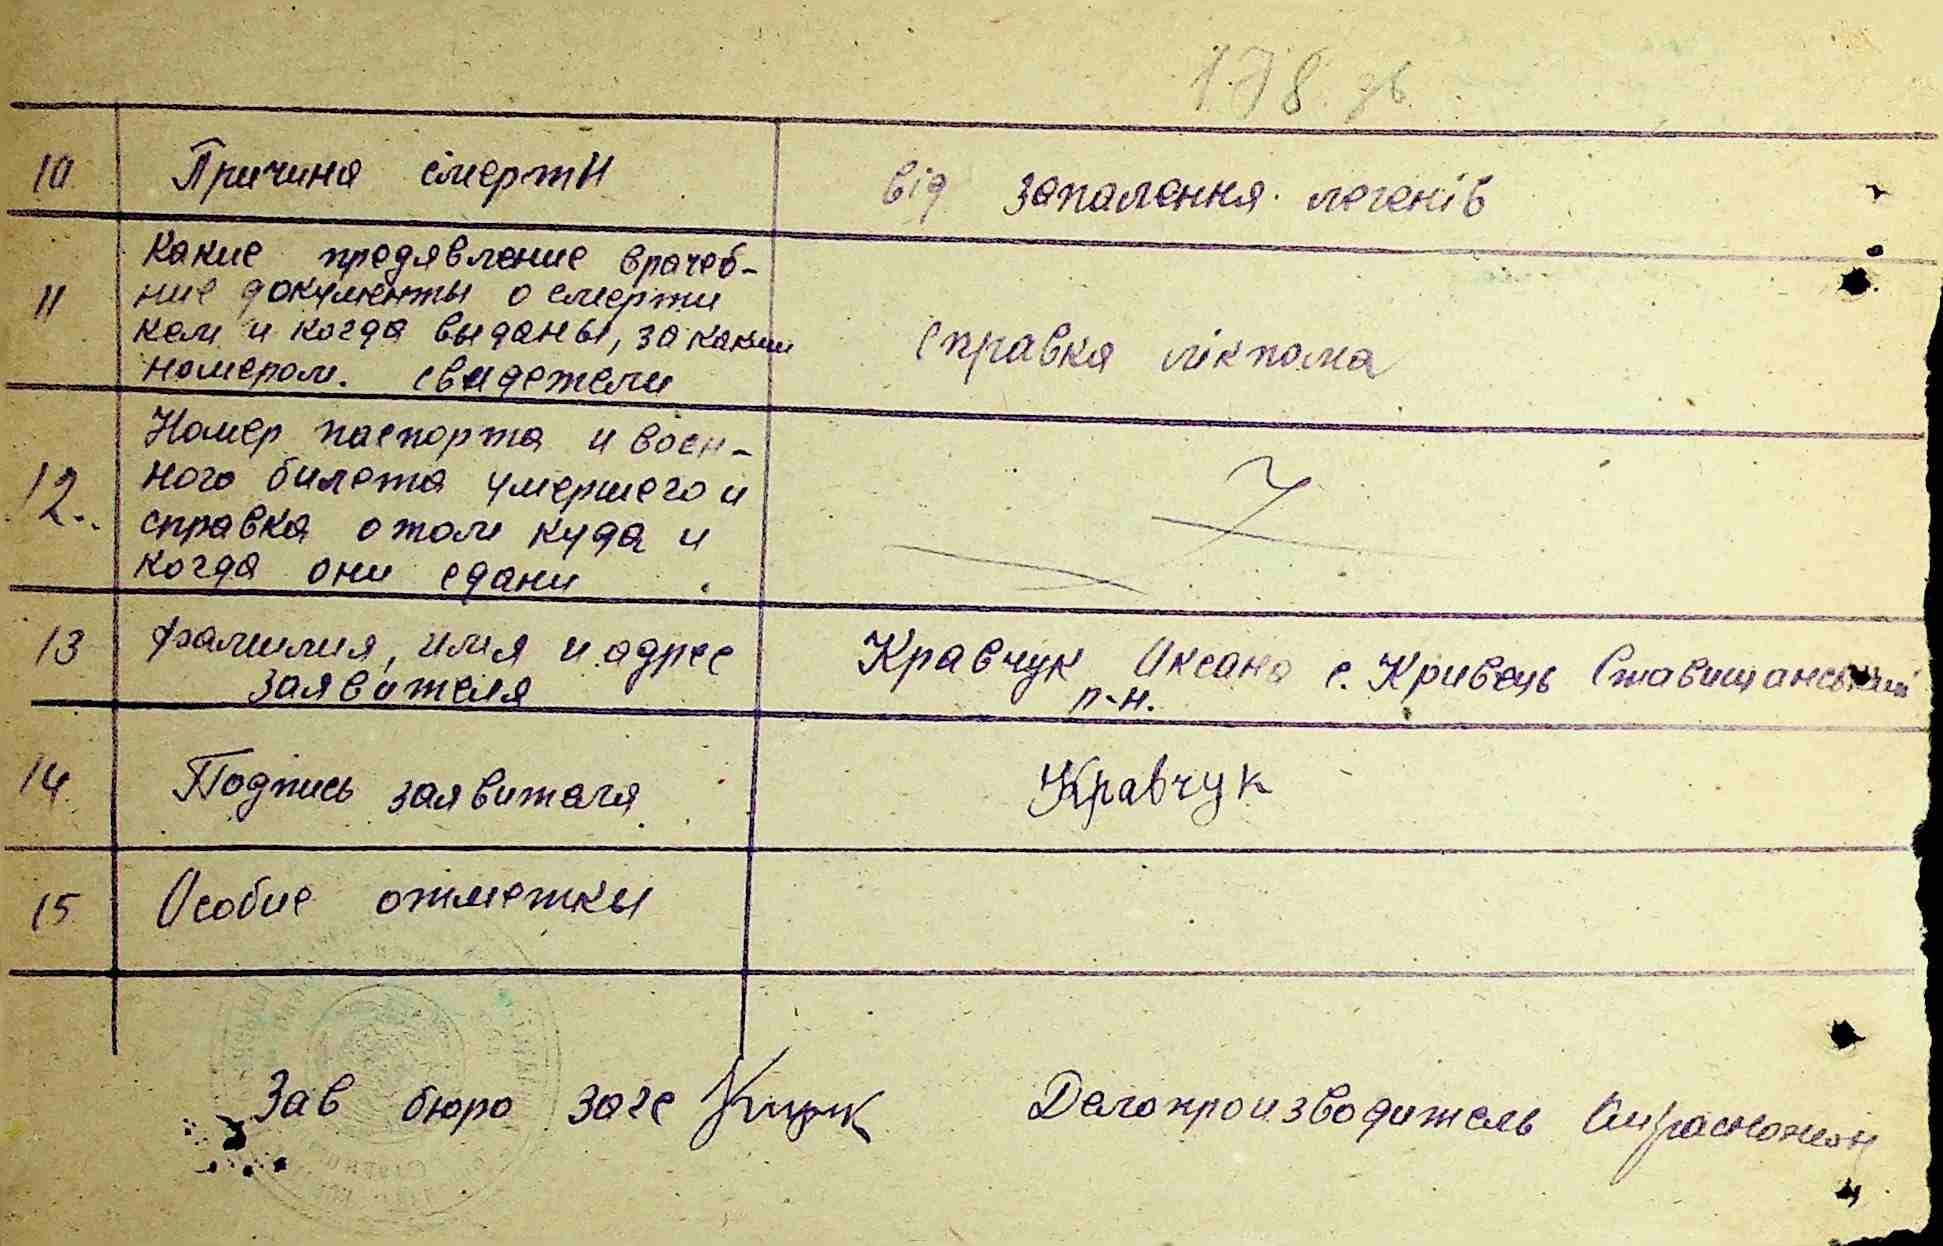 178 зв.
10 Причина смерты від запалення легенів
Какие предявление врачеб-
11 ние документы о смерти
кем и когда выданы, за каким
номером. свидетели справка лікпома
Номер паспорта и воен-
12. ного билета умершего и
справка о том куда и
когда они сдани
13 фамилия, имя и адрес Кравчук Оксана с. Кривець Ставищанський
заявителя р-н.
14 Подпись заявителя Кравчук
15 Особие отметкы
Зав бюро загс Делопроизводитель